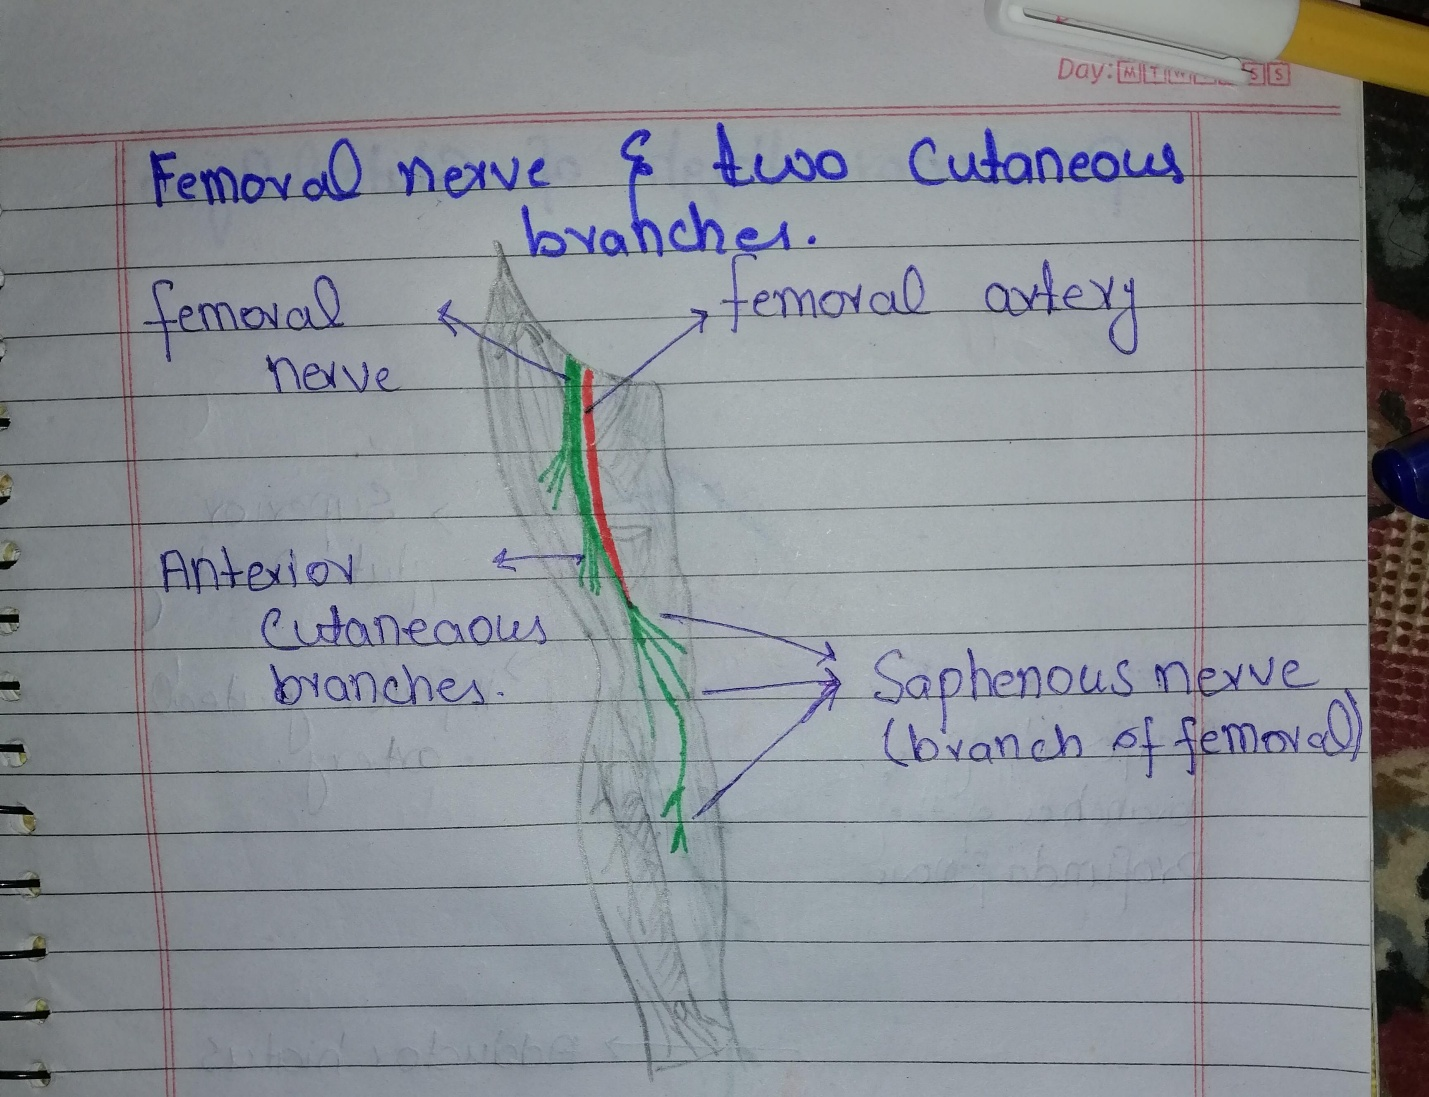 Day: M T W S S
Femoral nerve & two Cutaneous
branches.
femoral
nerve
femoral artery
Anterior
Cutaneaous
branches.
Saphenous nerve
(branch of femoral)